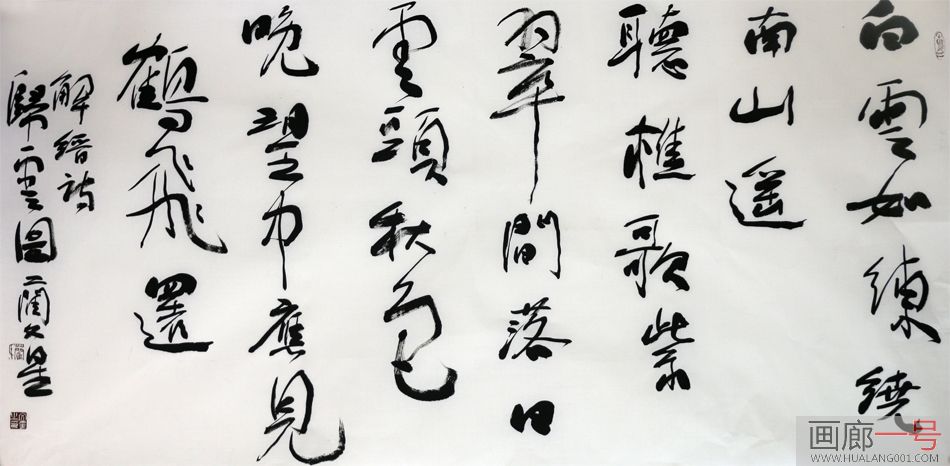 白雲如練繞
南山遥
聽樵歌紫
翠間落日
雲頭秋色
晚望中應見
鶴飛還
解縉詩
歸雲圖
画廊一号
WWW.HUALANG001.COM